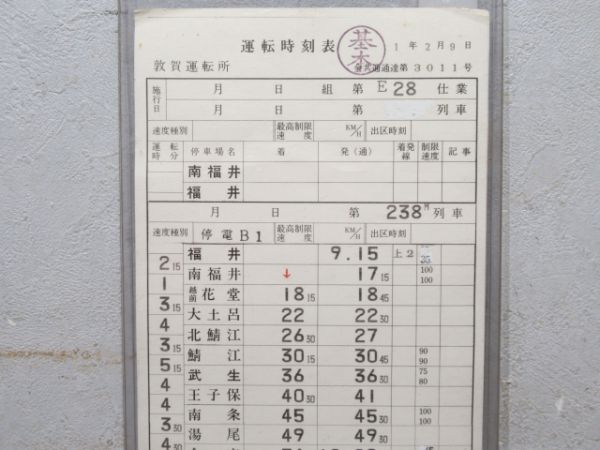 運転時刻表 基本 1年2月9日
敦賀運転所 通達第3011号
施行日 月 日 組 第 E28 仕業
月 日 第 列車
速度種別 最高制限速度 KM/H 出区時刻
運転時分 停車場名 着 発(通) 着発線 制限速度 記事
南福井
福井
月 日 第 238M 列車
速度種別 停電B1 最高制限速度 KM/H 出区時刻
福井 9.15 上2 35
2 15 南福井 ↓ 17 15 100 100
1 越前花堂 18 15 18 45
3 15 大土呂 22 22 30
4 北鯖江 26 30 27
3 15 鯖江 30 15 30 45 90 90
5 15 武生 36 36 30 75 80
4 王子保 40 30 41
4 南条 45 45 30 100 100
3 30 湯尾 49 49 30
4 30